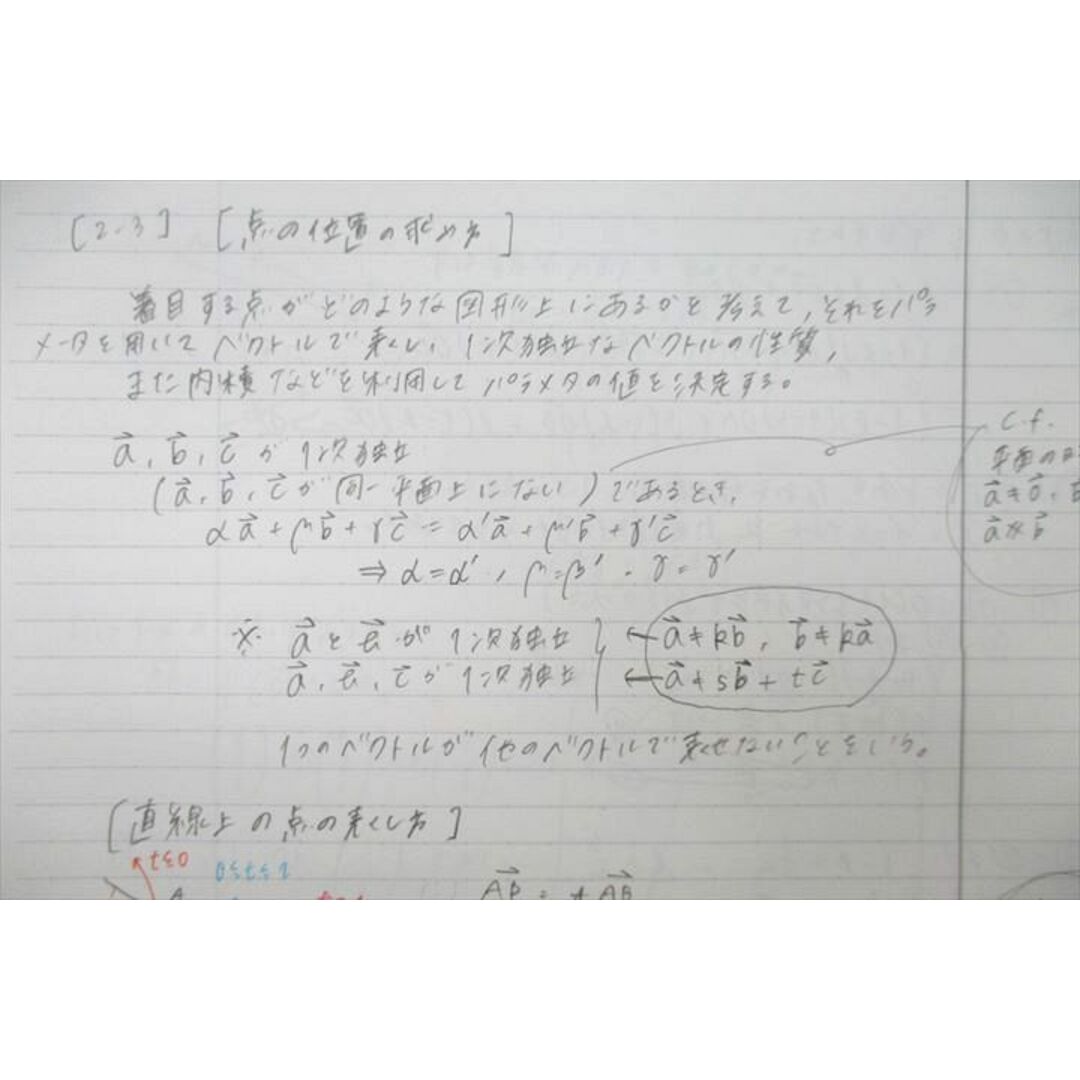 [2-3] [点の位置の求め方]
着目する点がどのような図形上にあるかを考えて,それをパラ
メータを用いてベクトルで表し,1次独立なベクトルの性質,
また内積などを利用してパラメタの値を決定する。
a⃗, b⃗, c⃗が1次独立
c.f.
(a⃗, b⃗, c⃗が同一平面上にない)であるとき,
平面の
αa⃗+βb⃗+γc⃗=α'a⃗+β'b⃗+γ'c⃗
a⃗≠0⃗,
⇒ α=α', β=β', γ=γ'
a⃗∦b⃗
※ a⃗とb⃗が1次独立 ← a⃗≠kb⃗, b⃗≠ka⃗
a⃗, b⃗, c⃗が1次独立 ← a⃗≠sb⃗+tc⃗
1つのベクトルが他のベクトルで表せないことをいう。
[直線上の点の表し方]
t≦0 0≦t≦1
A AP⃗=tAB⃗